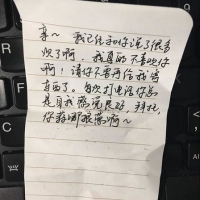 亲～ 我已经和你说了很多
次了啊，我真的不喜欢你
啊！请你不要再给我寄
东西了。每次打电话你总
是自我感觉良好，拜托，
你称哪根葱啊～